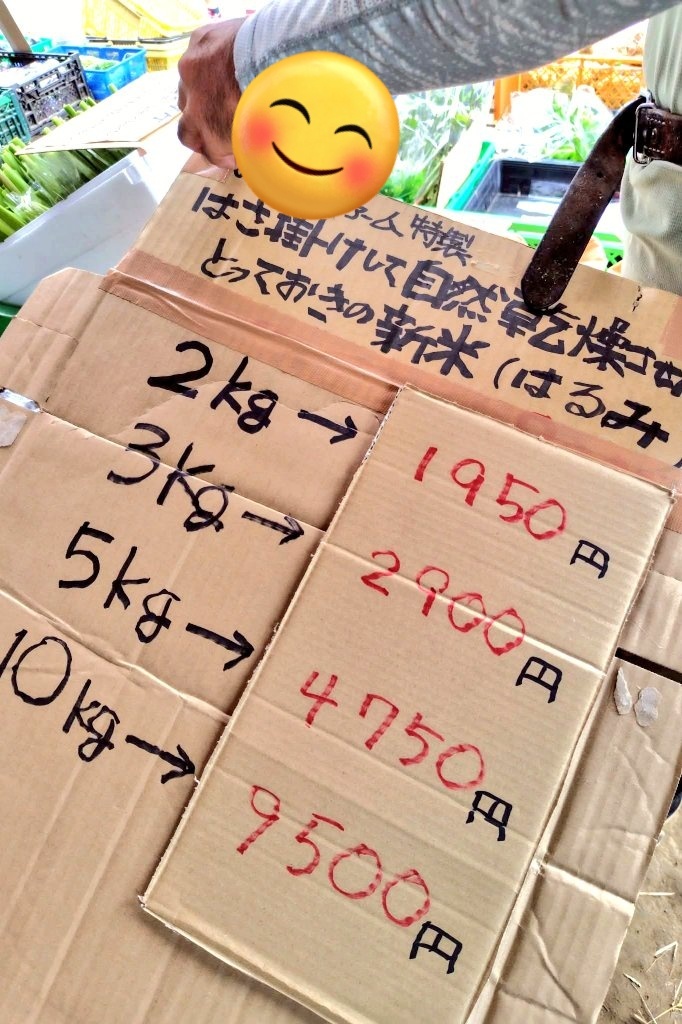 ーム特製
はさ掛けして自然乾燥させ
とっておきの新米(はるみ)
2kg→ 1950円
3kg→ 2900円
5kg→ 4750円
10kg→ 9500円